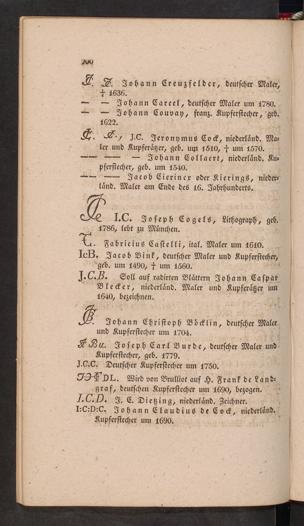 200
J. Z. Johann Creuzfelder, deutscher Maler,
† 1636.
— — Johann Careel, deutscher Maler um 1780.
— — Johann Couvay, franz. Kupferstecher, geb.
1622.
J.C. Jeronymus Cock, niederländ. Ma-
ler und Kupferätzer, geb. um 1510, † um 1570.
—— —— — Johann Collaert, niederländ. Ku-
pferstecher, geb. um 1540.
—— —— Jacob Cieriner oder Kierings, nieder-
länd. Maler am Ende des 16. Jahrhunderts.
I.C. Joseph Cogels, Lithograph, geb.
1786, lebt zu München.
Fabricius Castelli, ital. Maler um 1610.
IcB. Jacob Bink, deutscher Maler und Kupferstecher,
geb. um 1490, † um 1560.
J.C.B. Soll auf radirten Blättern Johann Caspar
Blecker, niederländ. Maler und Kupferätzer um
1640, bezeichnen.
Johann Christoph Böcklin, deutscher Maler
und Kupferstecher um 1704.
Bu. Joseph Carl Burde, deutscher Maler und
Kupferstecher, geb. 1779.
J.C.C. Deutscher Kupferstecher um 1750.
DL. Wird von Brulliot auf H. Frank de Land-
graf, deutschen Kupferstecher um 1690, bezogen.
I.C.D. J. C. Dietzing, niederländ. Zeichner.
I:C:D:C. Johann Claudius de Cock, niederländ.
Kupferstecher um 1690.